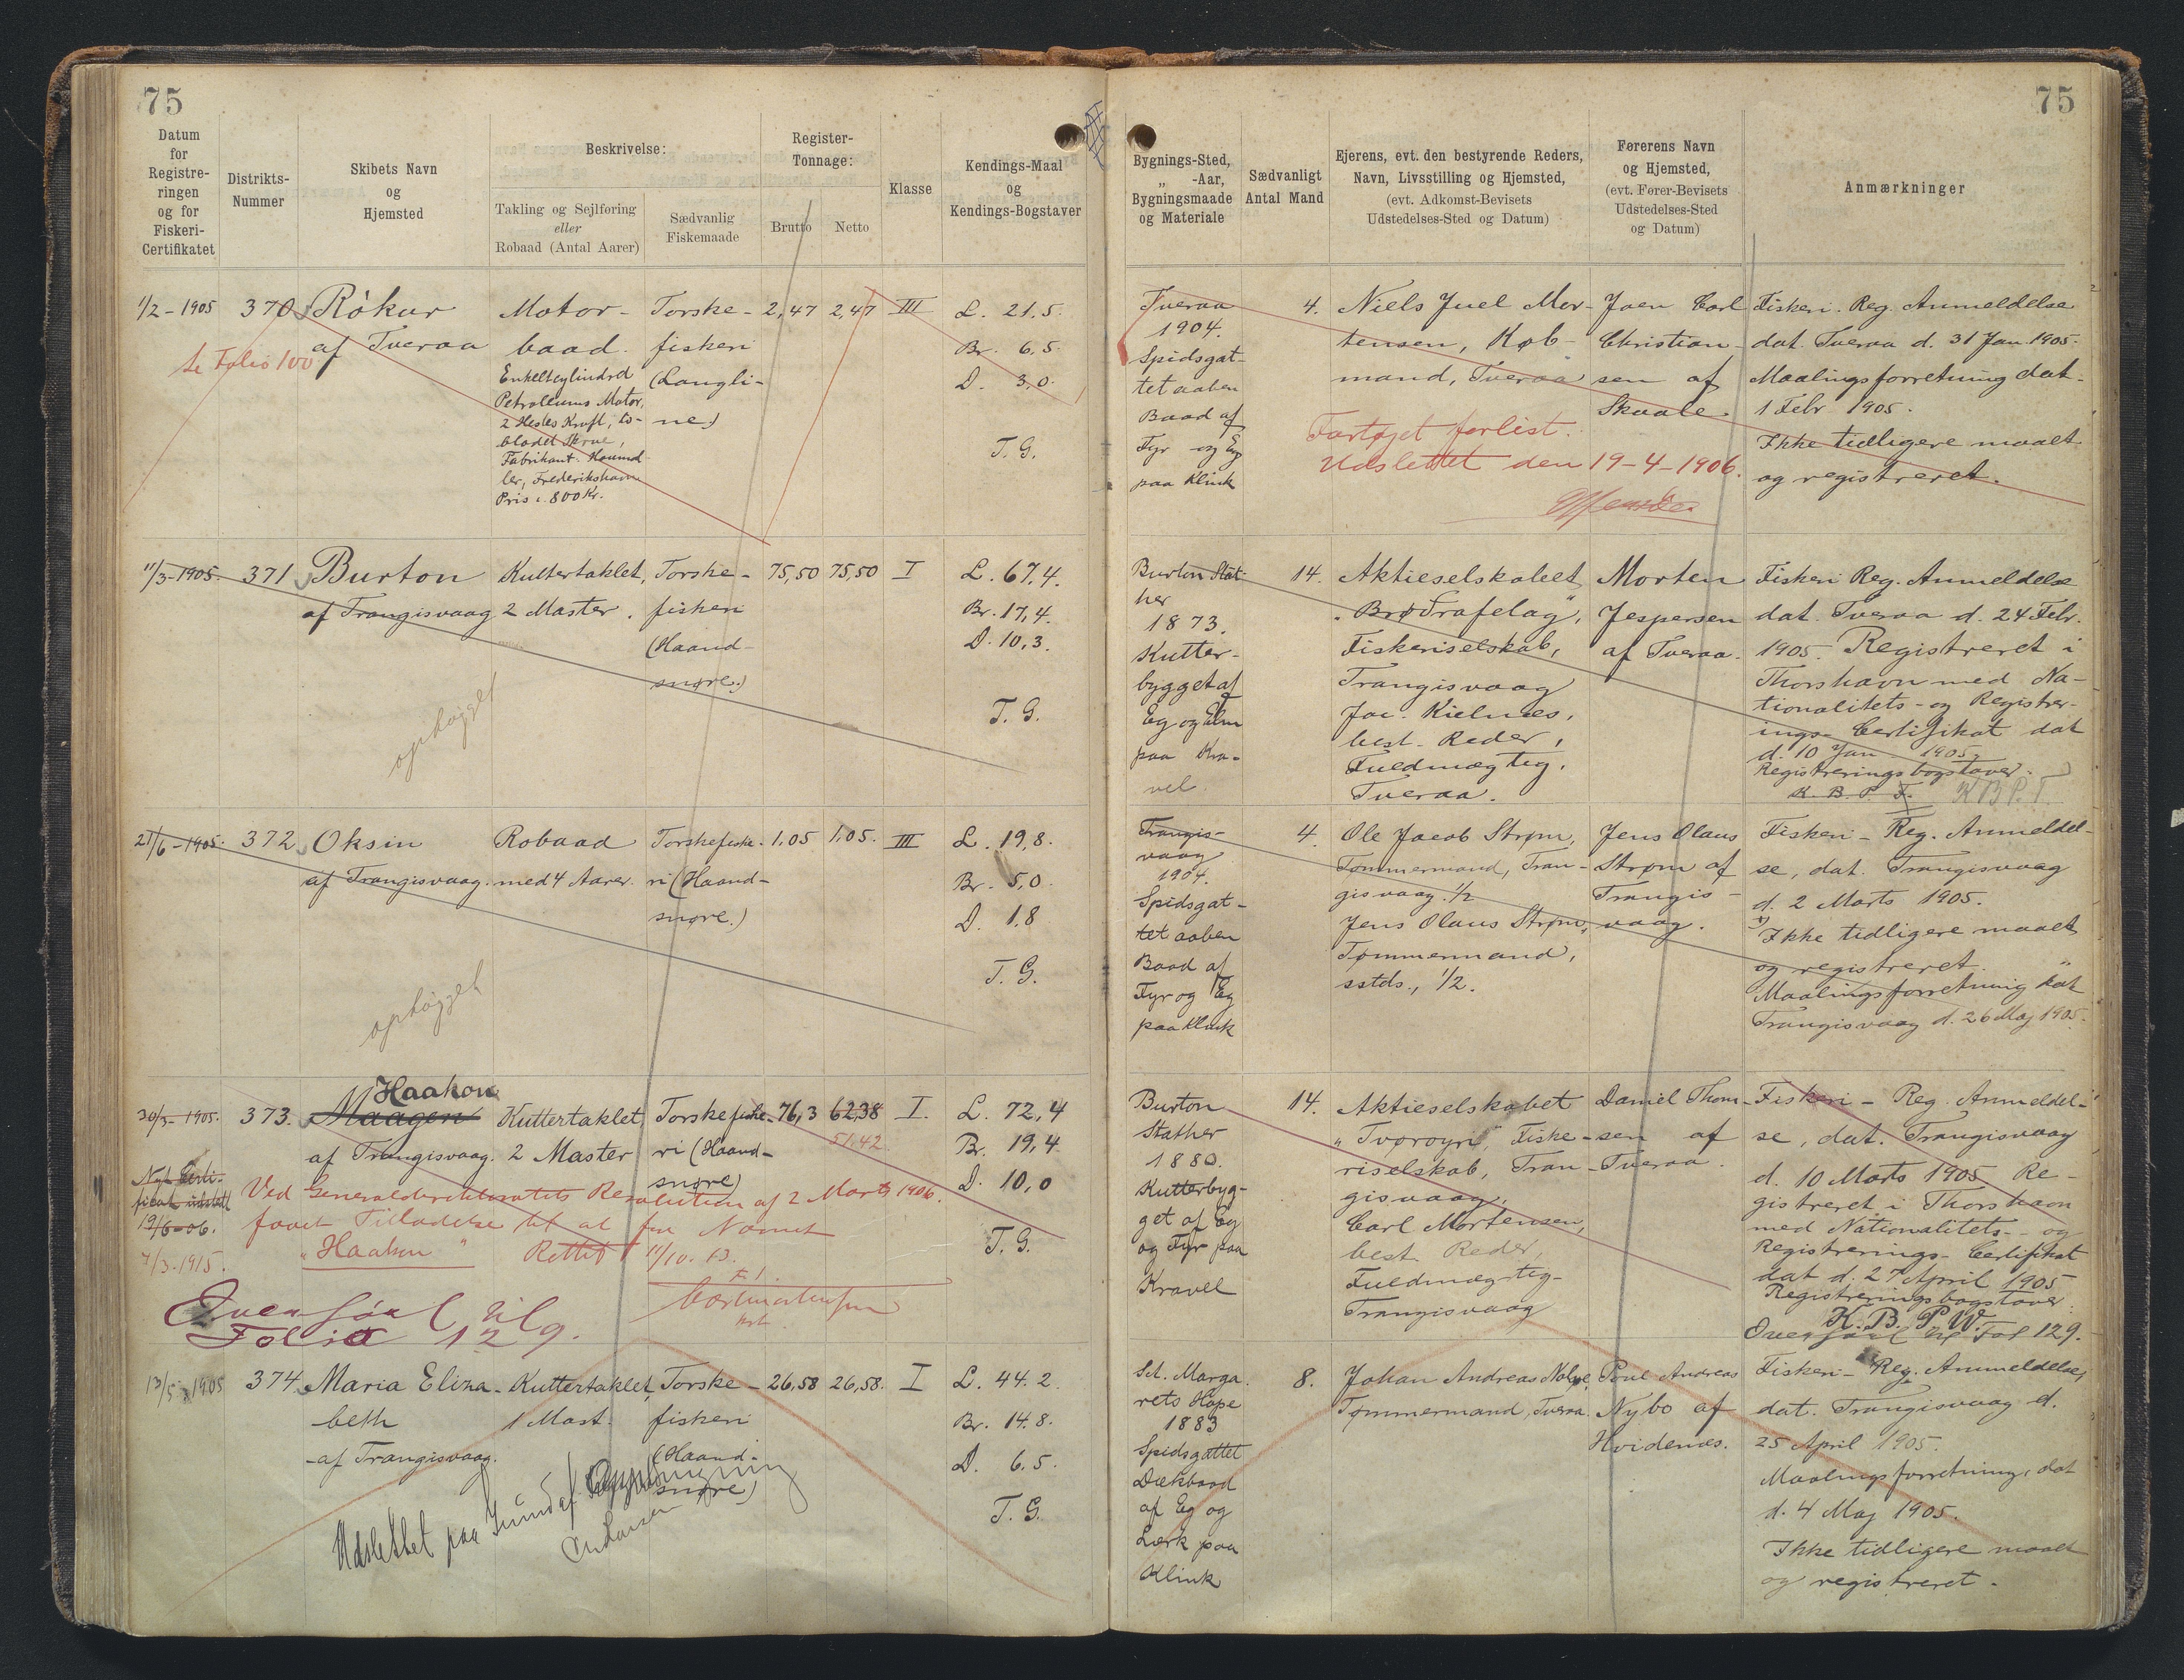 75
75
Datum
for
Registre-
ringen
og for
Fiskeri-
Certifikatet
Distrikts-
Nummer
Skibets Navn
og
Hjemsted
Beskrivelse:
Takling og Sejlføring
eller
Robaad (Antal Aarer)
Sædvanlig
Fiskemaade
Register-
Tonnage:
Brutto
Netto
Klasse
Kendings-Maal
og
Kendings-Bogstaver
Bygnings-Sted,
„ -Aar,
Bygningsmaade
og Materiale
Sædvanligt
Antal Mand
Ejerens, evt. den bestyrende Reders,
Navn, Livsstilling og Hjemsted,
(evt. Adkomst-Bevisets
Udstedelses-Sted og Datum)
Førerens Navn
og Hjemsted,
(evt. Fører-Bevisets
Udstedelses-Sted
og Datum)
Anmærkninger
1/2-1905
Folio 100
370
Rókur
af Tveraa
Motor-
baad.
Enkeltcylindrd
Petroleums Motor,
2 Hestes Kraft, to-
bladet Skrue,
Fabrikant
Frederikshavn
Pris c. 800 Kr.
Torske-
fiskeri
(Langli-
ne)
2,47
2,47
III
L. 21,5.
Br. 6,5.
D. 3,0.
T. G.
Tveraa
1904.
Spidsgat-
tet aaben
Baad af
Fyr og Eg
paa Klink
4.
Niels Juel Mor-
tensen, Køb-
mand, Tveraa
Fartøjet forlist.
Udslettet den 19-4-1906.
Joen Carl
Christian-
sen af
Skaale.
Fiskeri. Reg. Anmeldelse
dat. Tveraa d. 31 Jan. 1905.
Maalingsforretning dat.
1 Febr 1905.
Ikke tidligere maalt
og registreret.
11/3-1905.
371
Burton
af Trangisvaag
ophøgget
Kuttertaklet,
2 Master.
Torske-
fiskeri
(Haand-
snøre.)
75,50
75,50
I
L. 67,4.
Br. 17,4.
D. 10,3.
T. G.
Burton Stat-
her
1873.
Kutter-
bygget af
Eg og Elm
paa Kra-
vel
14.
Aktieselskabet
„Brødrafelag",
Fiskeriselskab,
Trangisvaag
Jac. Kielnæs,
best. Reder,
Fuldmægtig,
Tveraa.
Morten
Jespersen
af Tveraa.
Fiskeri Reg. Anmeldelse
dat. Tveraa d. 24 Febr.
1905. Registreret i
Thorshavn med Na-
tionalitets- og Registrer-
ings- Certifikat dat
d. 10 Jan 1905.
Registreringsbogstaver:
K. B. P. T. KBPT.
21/6-1905.
372
Oksin
af Trangisvaag.
ophøgget
Robaad
med 4 Aarer.
Torskefiske-
ri (Haand-
snøre.)
1,05
1,05.
III
L. 19,8.
Br. 5,0
D. 1,8
T. G.
Trangis-
vaag
1904.
Spidsgat-
tet aaben
Baad af
Fyr og Eg
paa Klink
4.
Ole Jacob Strøm,
Tømmermand, Tran-
gisvaag. 1/2
Jens Olaus Strøm,
Tømmermand,
sstds., 1/2.
Jens Olaus
Strøm af
Trangis-
vaag.
Fiskeri- Reg. Anmeldel-
se, dat. Trangisvaag
d. 2 Marts 1905.
Ikke tidligere maalt
og registreret.
Maalingsforretning dat
Trangisvaag d. 26 Maj 1905.
30/3-1905.
Nyt Certi-
ficat udstedt
19/6-06.
7/3.1915.
373.
Haakon
Maagen
af Trangisvaag.
Kuttertaklet
2 Master
Torskefiske-
ri (Haand-
snøre)
76,3
62,38
51,42
I.
L. 72,4
Br. 19,4
D. 10,0
T. G.
Ved Generaldirektoratets Resolution af 2 Marts 1906.
faaet Tilladelse til at Navnet
„Haakon" Rettet 11/10. 13.
Overført til
Folio 129.
Burton
Stather
1880.
Kutterbyg-
get af Eg
og Fyr paa
Kravel
14.
Aktieselskabet
„Tvøroyri" Fiske-
riselskab, Tran-
gisvaag,
Carl Mortensen,
best. Reder,
Fuldmægtig-
Trangisvaag
Daniel Thom-
sen af
Tveraa.
Fiskeri- Reg. Anmeldel-
se, dat. Trangisvaag
d. 10 Marts 1905. Re-
gistreret i Thorshavn
med Nationalitets- og
Registrerings- Certifikat
dat d. 27 April 1905
Registreringsbogstaver.
K. B. P. W.
Overført til Fol 129.
13/5-1905
374
Maria Eliza-
beth
af Trangisvaag.
Kuttertaklet,
1 Mast.
Torske-
fiskeri
(Haand-
snøre)
26,58
26,58.
I
L. 44.2.
Br. 14.8.
D. 6.5.
T. G.
Udslettet paa Grund af Ophugning
Sct. Marga-
rets Hope
1883
Spidsgattet
Dækbaad
af Eg og
Lærk paa
Klink
8.
Johan Andreas Nolsøe,
Tømmermand, Tveraa.
Poul Andreas
Nybo af
Hvidenæs.
Fiskeri- Reg. Anmeldelse,
dat. Trangisvaag d.
25 April 1905.
Maalingsforretning, dat
d. 4 Maj 1905.
Ikke tidligere maalt
og registreret.